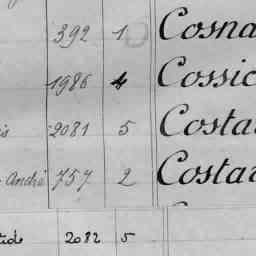 392 1 Cosna
1986 4 Cossic
is 2081 5 Costa
André 757 2 Costa
2082 5